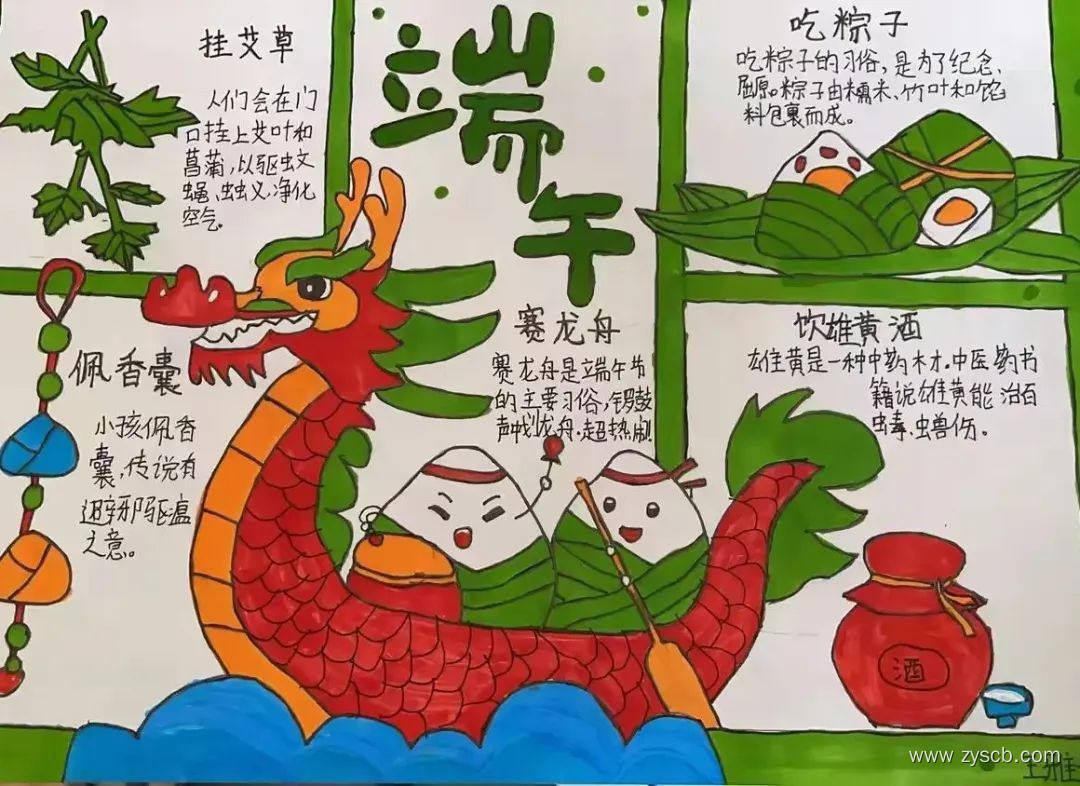 挂艾草
人们会在门
口挂上艾叶和
菖蒲，以驱蚊
蝇、虫虫义，净化
空气。
端
午
吃粽子
吃粽子的习俗，是为了纪念
屈原。粽子由糯米、竹叶和馅
料包裹而成。
佩香囊
小孩佩香
囊，传说有
避邪驱瘟
之意。
赛龙舟
赛龙舟是端午节
的主要习俗，锣鼓
声中划龙舟.超热闹
饮雄黄酒
雄黄是一种中药材.中医药书
籍说雄黄能治百
虫毒、虫兽伤。
酒
www.zyscb.com